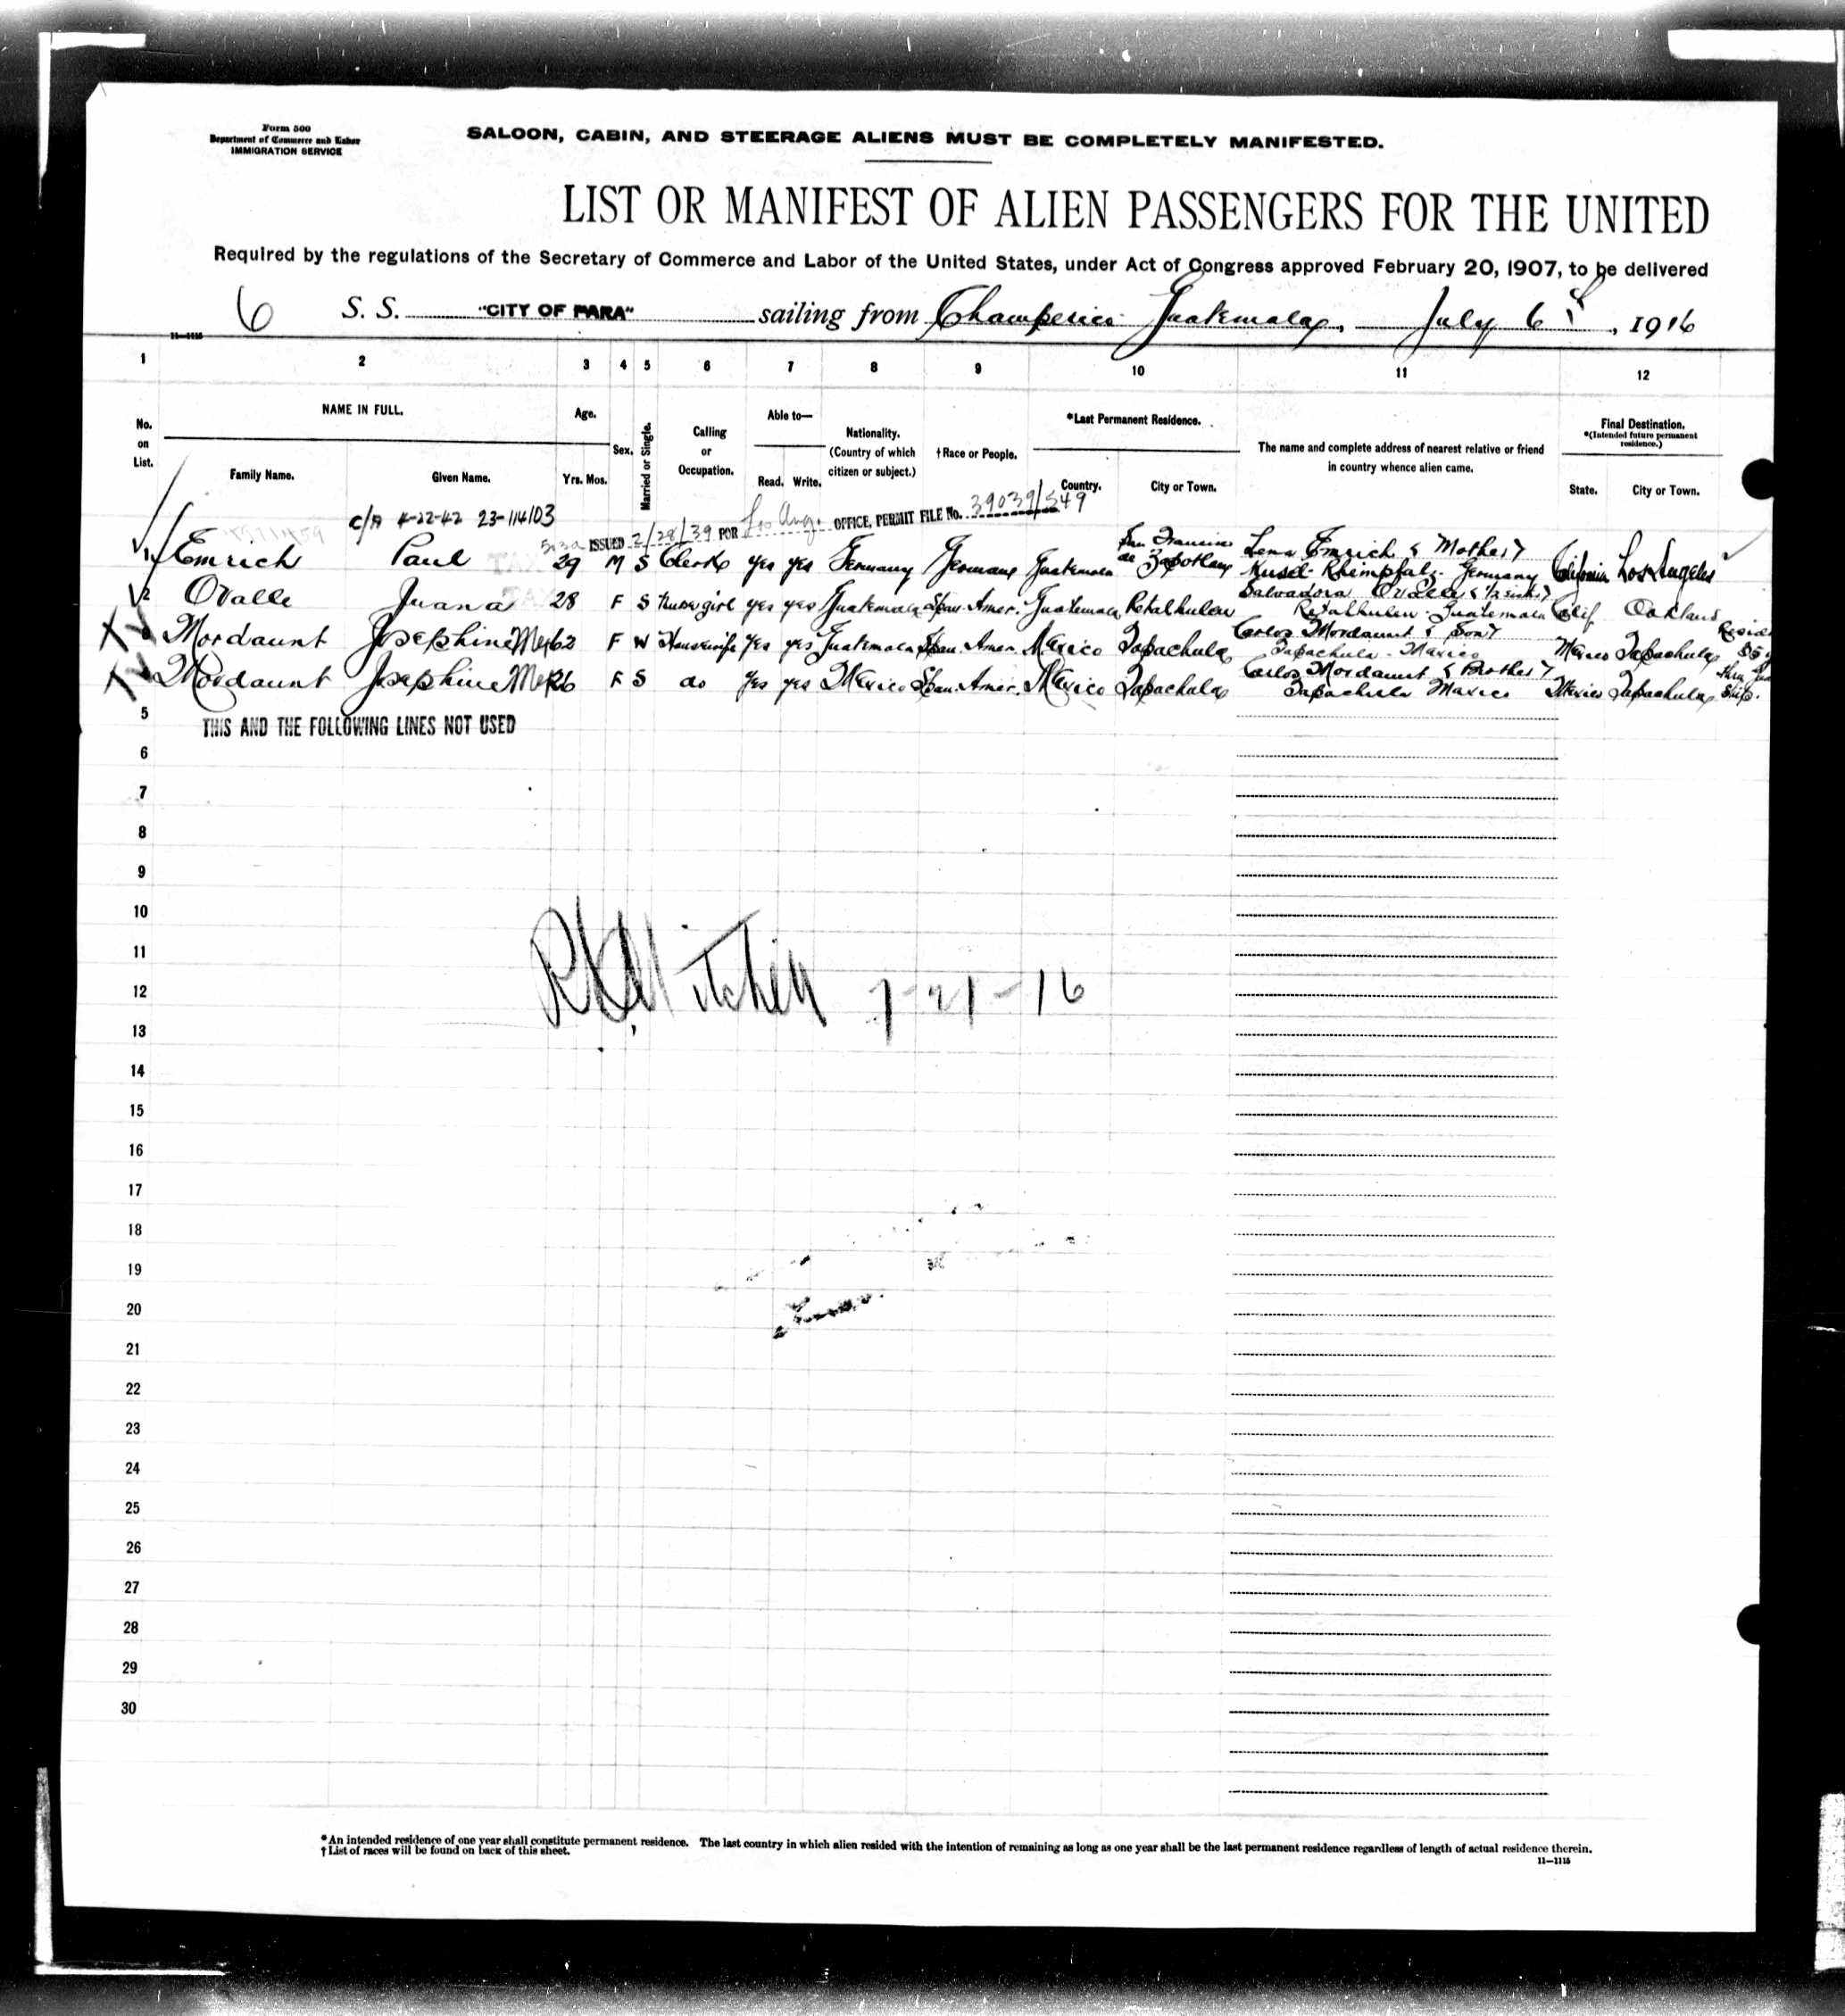 Form 500
Department of Commerce and Labor
IMMIGRATION SERVICE
SALOON, CABIN, AND STEERAGE ALIENS MUST BE COMPLETELY MANIFESTED.
LIST OR MANIFEST OF ALIEN PASSENGERS FOR THE UNITED
Required by the regulations of the Secretary of Commerce and Labor of the United States, under Act of Congress approved February 20, 1907, to be delivered
6 S. S. "CITY OF PARA" sailing from Champerico Guatemala, July 6, 1916
11—1115
1 2 3 4 5 6 7 8 9 10 11 12
No. on List.
NAME IN FULL.
Family Name. Given Name.
Age.
Yrs. Mos.
Sex.
Married or Single.
Calling or Occupation.
Able to—
Read. Write.
Nationality.
(Country of which citizen or subject.)
†Race or People.
*Last Permanent Residence.
Country. City or Town.
The name and complete address of nearest relative or friend
in country whence alien came.
Final Destination.
*(Intended future permanent residence.)
State. City or Town.
C/A 4-22-42 23-114103
ISSUED 2/28/39 FOR Los Ang. OFFICE, PERMIT FILE No. 39039/549
1 Emrich Paul 29 M S Clerk yes yes Germany German Guatemala San Francisco de Zapotlan Lena Emrich (Mother) Kusel Rheinpfalz Germany California Los Angeles
2 Ovalle Juana 28 F S Nurse girl yes yes Guatemala Span. Amer. Guatemala Retalhuleu Salvadora Ovalle Retalhuleu Guatemala Calif Oakland
Mordaunt Josephine 62 F W Housewife yes yes Guatemala Span. Amer. Mexico Tapachula Carlos Mordaunt (Son) Tapachula Mexico Mexico Tapachula
Mordaunt Josephine 26 F S do yes yes Mexico Span. Amer. Mexico Tapachula Carlos Mordaunt (Brother) Tapachula Mexico Mexico Tapachula
5
THIS AND THE FOLLOWING LINES NOT USED
6
7
8
9
10
11
Mitchell 7-21-16
12
13
14
15
16
17
18
19
20
21
22
23
24
25
26
27
28
29
30
*An intended residence of one year shall constitute permanent residence. The last country in which alien resided with the intention of remaining as long as one year shall be the last permanent residence regardless of length of actual residence therein.
†List of races will be found on back of this sheet.
11—1115